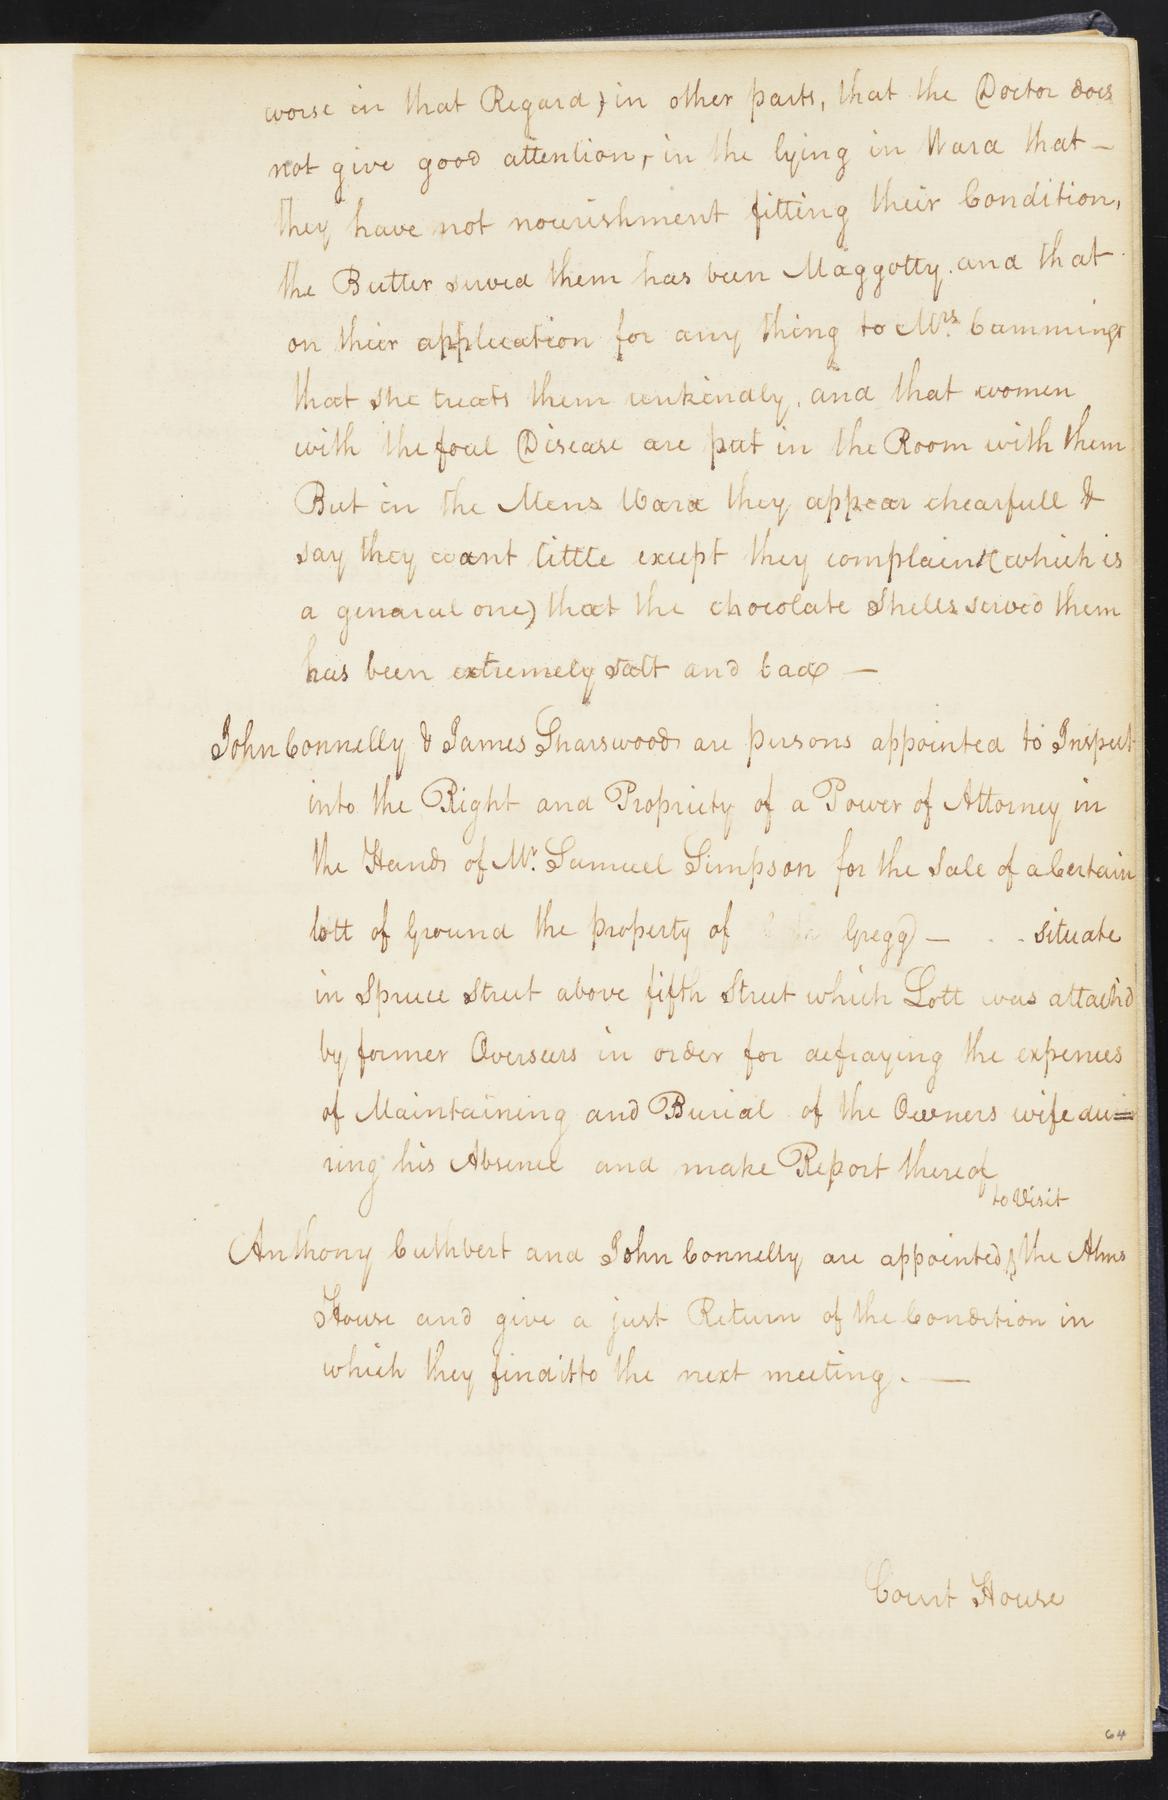 worse in that Regard; in other parts, that the Doctor does
not give good attention, in the lying in Ward that —
they have not nourishment fitting their Condition,
the Butter served them has been Maggotty. and that
on their application for any thing to Mrs. Cummings
that she treats them unkindly, and that women
with the foul Disease are put in the Room with them
But in the Mens Ward they appear chearfull &
say they want little except they complain (which is
a general one) that the chocolate Shells served them
has been extremely salt and bad —
John Connelly & James Sharswood are persons appointed to Inspect
into the Right and Propriety of a Power of Attorney in
the Hands of Mr. Samuel Simpson for the Sale of a Certain
lott of Ground the property of Gregg — situate
in Spruce Street above fifth Street which Lott was attach'd
by former Overseers in order for defraying the expences
of Maintaining and Burial of the Owners wife du=
ring his Absence and make Report thereof
to Visit
Anthony Cuthbert and John Connelly are appointed ^ the Alms
House and give a just Return of the Condition in
which they find it to the next meeting. —
Court House
64